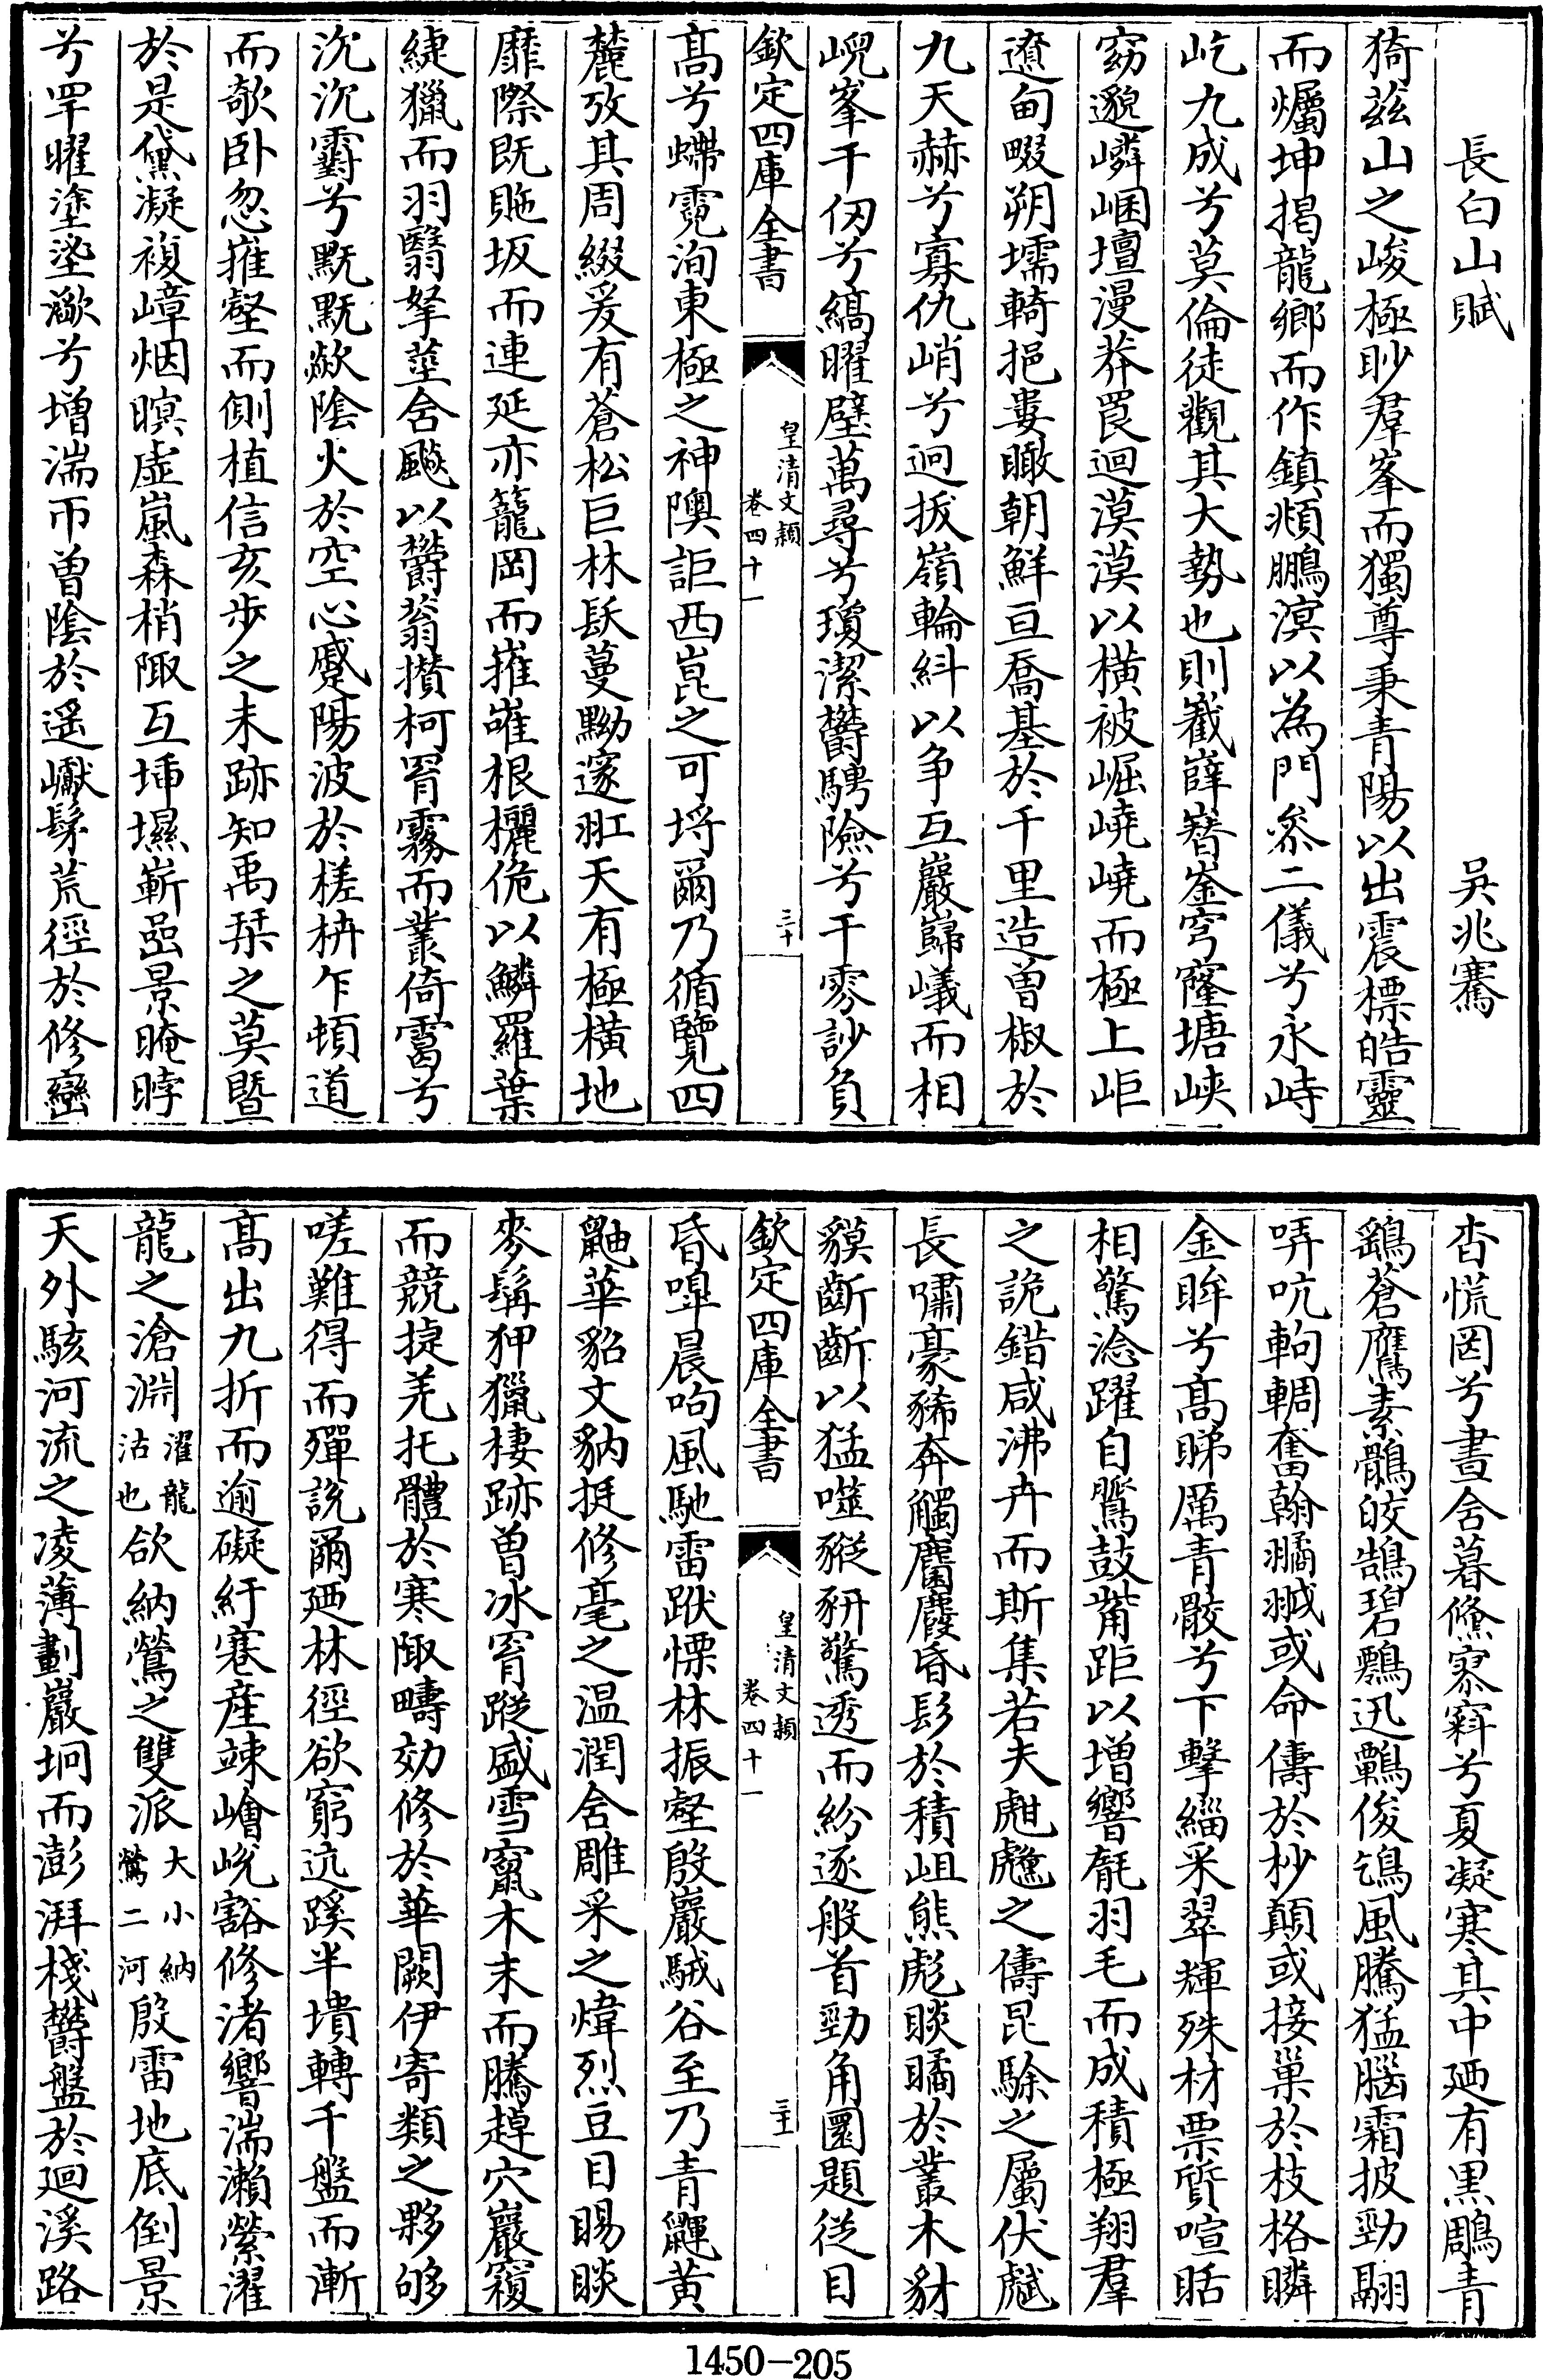 長白山賦 吳兆騫
猗茲山之峻極眇羣峯而獨尊秉青陽以出震標皓靈
而爥坤揭龍鄉而作鎮頫鵬溟以為門叅二儀兮永峙
屹九成兮莫倫徒觀其大勢也則巀嶭嶜崟穹窿塘峽
窈邈嶙崓壇漫莽罠迴漠漠以橫被崛嶢嶢而極上岠
遼甸畷朔壖輢挹婁瞰朝鮮亘喬基於千里造曾椒於
九天赫兮寡仇峭兮迥拔嶺輪紏以争互巖巋嶬而相
崼峯千仞兮縞曜壁萬尋兮瓊潔欝騁險兮干雰訬負
欽定四庫全書
皇清文穎
卷四十一
三十
髙兮螮霓洵東極之神隩詎西崑之可埒爾乃循覽四
麓攷其周綴爰有蒼松巨林镺蔓黝邃羾天有極橫地
靡際既貤坂而連延亦籠岡而嶊嶉根欐佹以鱗羅葉
緁獵而羽翳拏莖含飈以欝蓊攅柯罥霧而叢倚靄兮
沉沉霨兮黕黕歘隂火於空心蹙陽波於槎枿乍頓道
而欹卧忽摧壑而側植信亥步之未跡知禹栞之莫暨
於是黛凝複嶂烟暝虛嵐森梢陬互埇壖嶄嵒景晻㫝
兮罕曜塗塗溦兮增湍帀曾隂於遥巘髣荒徑於修巒
杳慌罔兮晝含暮儵寥窲兮夏凝寒其中廼有黒鵰青
鷂蒼鷹素鶻皎鵠碧鸇迅鶽俊鴝風騰猛腦霜披勁翮
哢吭輷輖奮翰獝㹤或命儔於杪顛或接巢於枝格瞵
金眸兮髙睇厲青骹兮下擊緇采翠輝殊材票質喧聒
相驚淰躍自驚鼓觜距以增響毻羽毛而成積極翔羣
之詭錯咸沸卉而斯集若夫虪䖘之儔昆駼之屬伏虣
長嘯豪豨奔觸麕麚昏髟於積岨熊彪睒矞於叢木豺
貘齗齗以猛噬豵豣驚透而紛逐般首勁角圜題從目
欽定四庫全書
皇清文穎
卷四十一
三十一
昏嘷晨呴風馳雷跃慄林振壑殷巖駴谷至乃青䶉黄
鼬華貂文豽挺修毫之温潤含雕采之煒烈豆目賜睒
麥髯狎獵棲跡曽冰窅蹤盛雪竄木末而騰趠穴巖窽
而競捷羌托體於寒陬疇効修於華闕伊寄類之夥够
嗟難得而殫説爾廼林徑欲窮迒蹊半墤轉千盤而漸
髙出九折而逾礙紆蹇産竦嶒㟋豁修渚響湍瀨縈濯
龍之滄淵濯龍沽也欱納鶯之雙派大小納鶯二河殷雷地底倒景
天外駭河流之凌薄劃巖坰而澎湃棧欝盤於迴溪路
1450-205